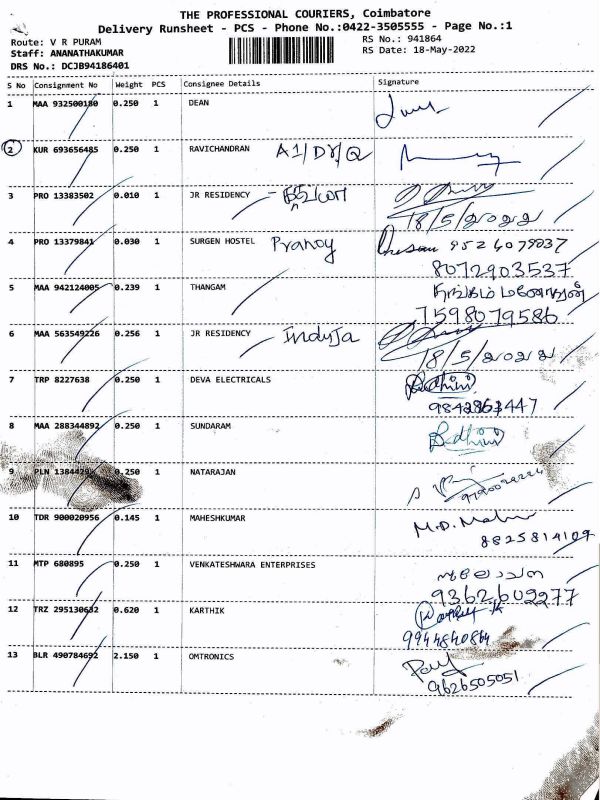 THE PROFESSIONAL COURIERS, Coimbatore
Delivery Runsheet - PCS - Phone No.:0422-3505555 - Page No.:1
Route: V R PURAM
Staff: ANANATHAKUMAR
DRS No.: DCJB94186401
RS No.: 941864
RS Date: 18-May-2022
S No Consignment No Weight PCS Consignee Details Signature
1 MAA 932500180 0.250 1 DEAN
2 KUR 693656485 0.250 1 RAVICHANDRAN A1/DY/Q
3 PRO 13383502 0.010 1 JR RESIDENCY
18/5/2022
4 PRO 13379841 0.030 1 SURGEN HOSTEL Pranoy 9524079037
8072903537
5 MAA 942124005 0.239 1 THANGAM தங்கம் மனோகரன்
7598079586
6 MAA 563549226 0.256 1 JR RESIDENCY Induja
18/5/2022
7 TRP 8227638 0.250 1 DEVA ELECTRICALS
9842863447
8 MAA 288344892 0.250 1 SUNDARAM
9 PLN 0.250 1 NATARAJAN
10 TDR 900020956 0.145 1 MAHESHKUMAR M.D.
8825814109
11 MTP 680895 0.250 1 VENKATESHWARA ENTERPRISES
9362602277
12 TRZ 295130632 0.620 1 KARTHIK
9944840864
13 BLR 490784692 2.150 1 OMTRONICS
9626505051